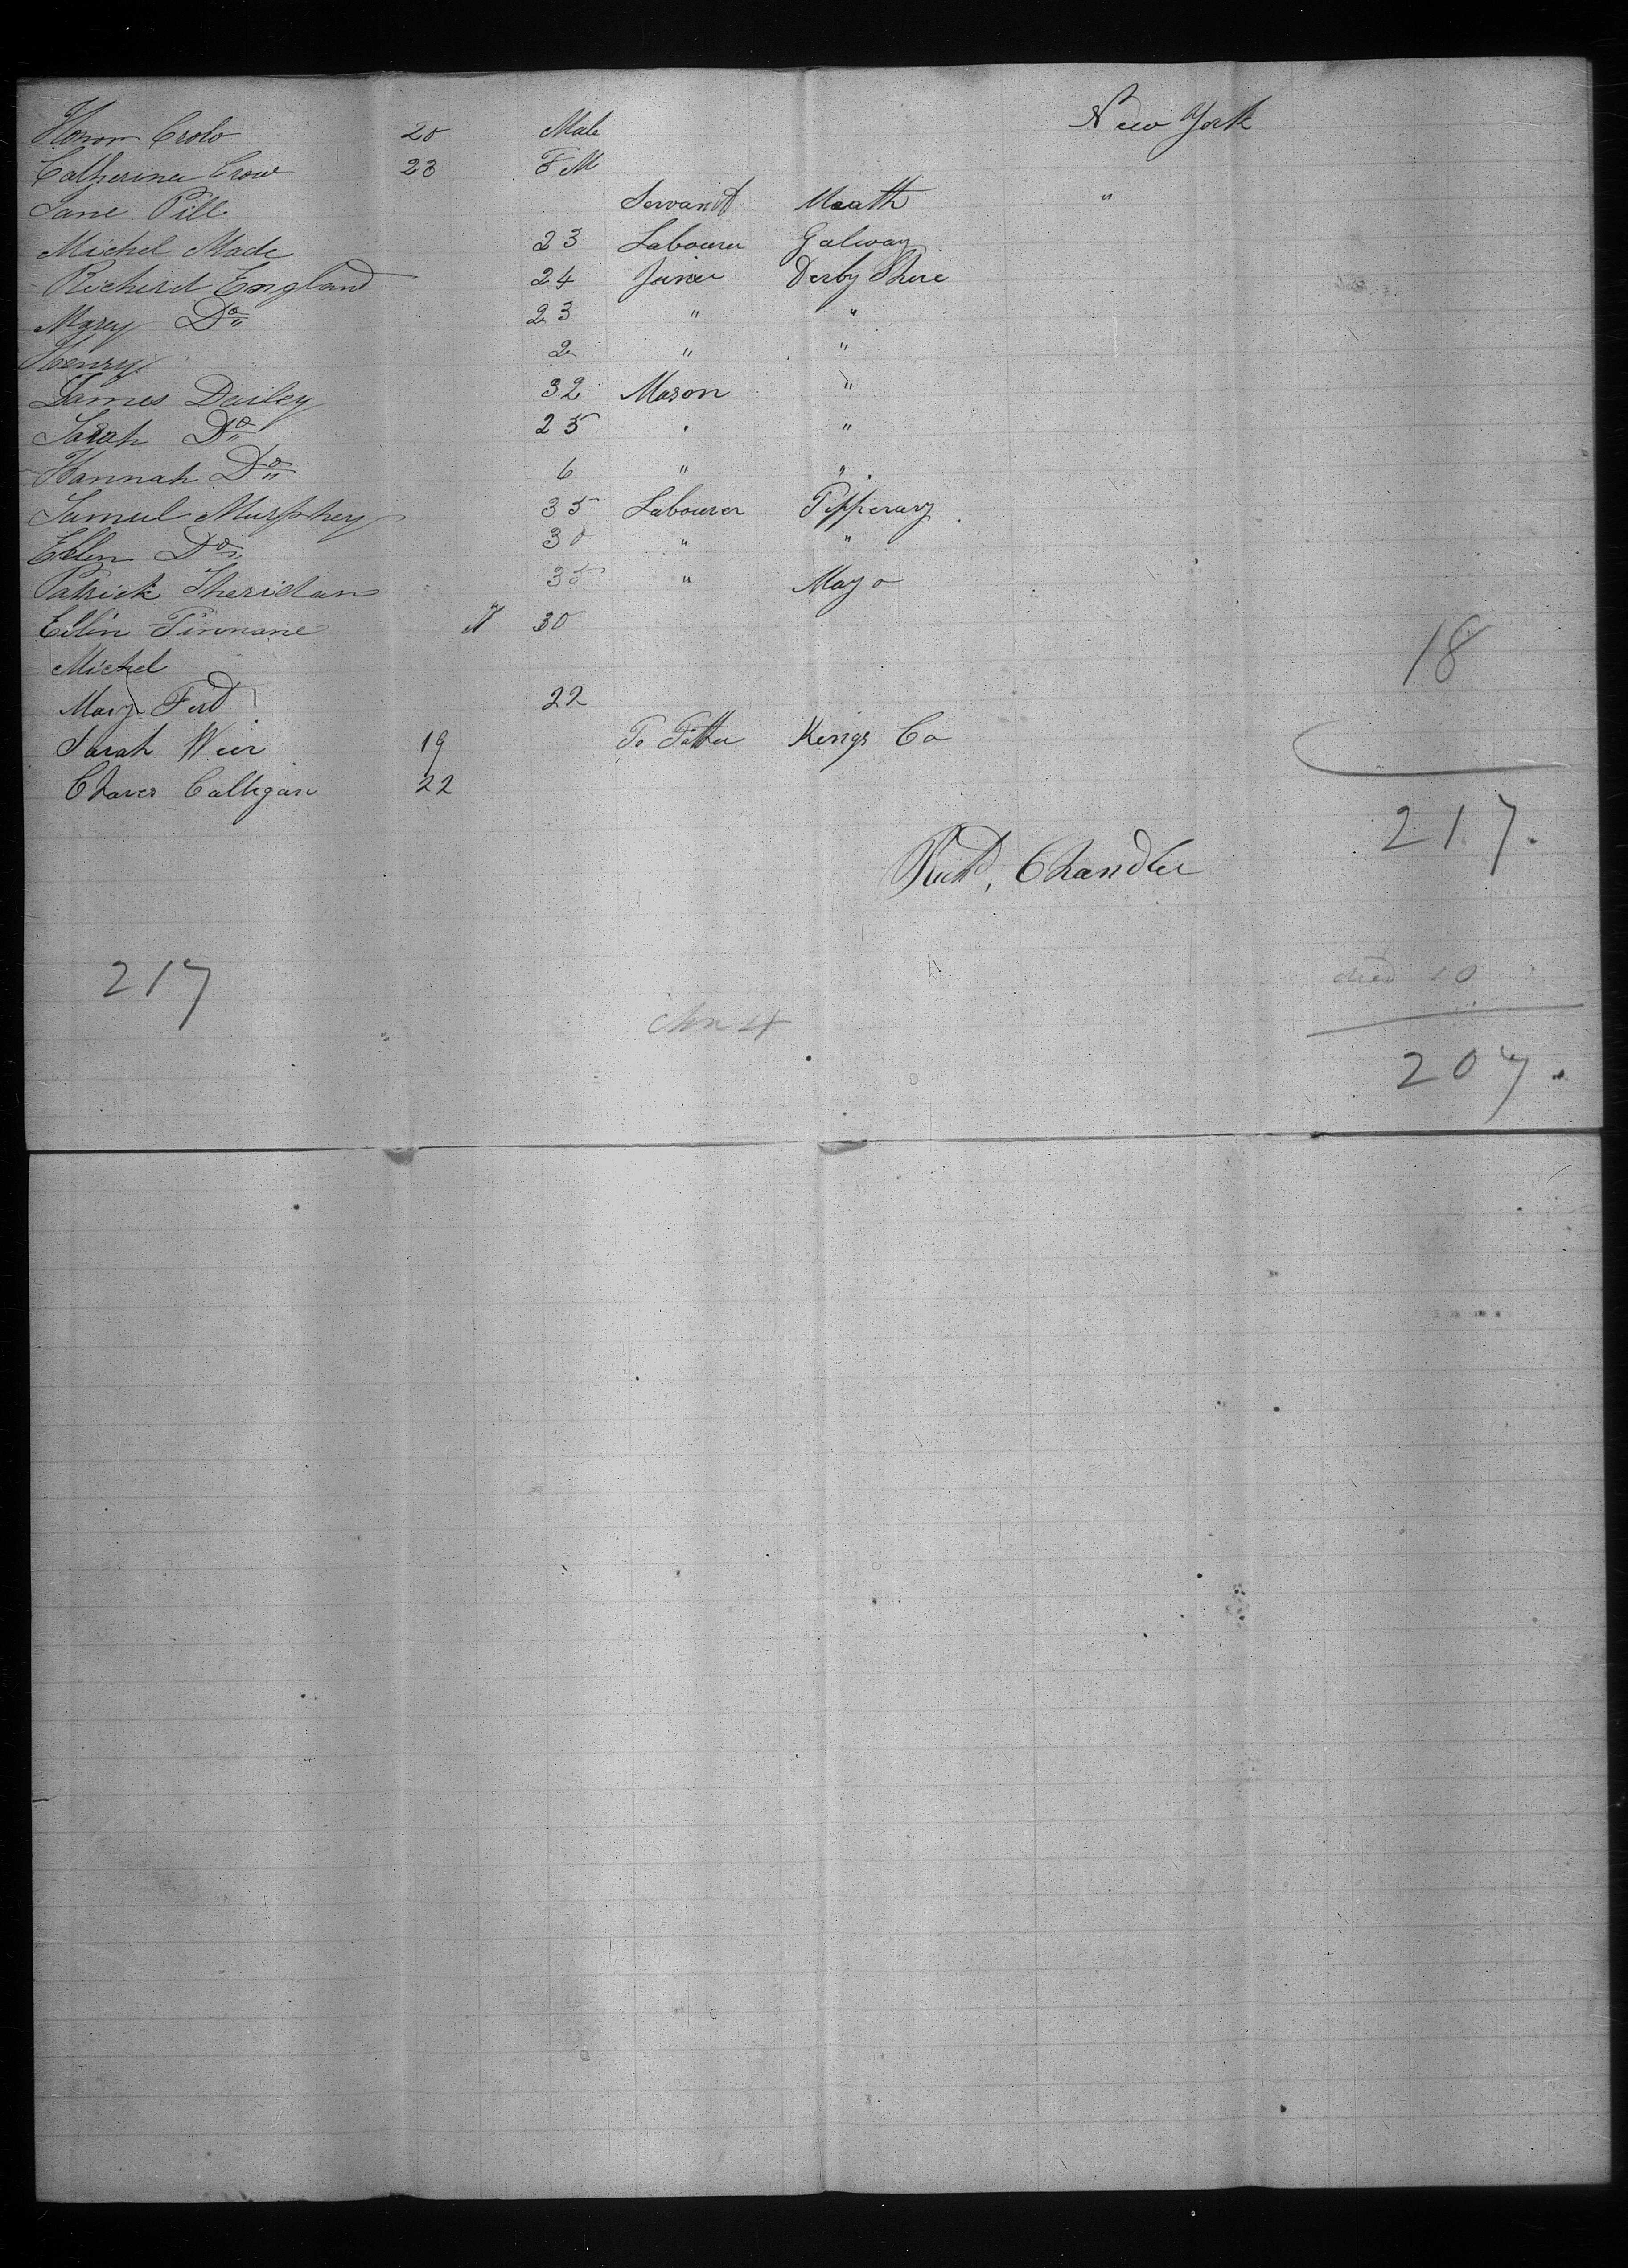 Honor Crow 20 Male New York
Catherine Crow 23 F M
Jane Pill Servant Meath "
Michel Made 23 Labourer Galway
Richird England 24 Joiner Derby Shire
Marey Do 23 " "
Henry 2 " "
James Dailey 32 Mason "
Sarah Do 25 " "
Hannah Do 6 " "
Samuel Murphey 35 Labourer Tipperary
Ellen Do 30 " "
Patrick Sheridan 35 " Mayo
Ellin Finnane 30
Michel
18
Mary Ford 22
Sarah Weer 19 To Father Kings Co
Calligan 22
217.
Richd, Chandler
217
died 10
207.